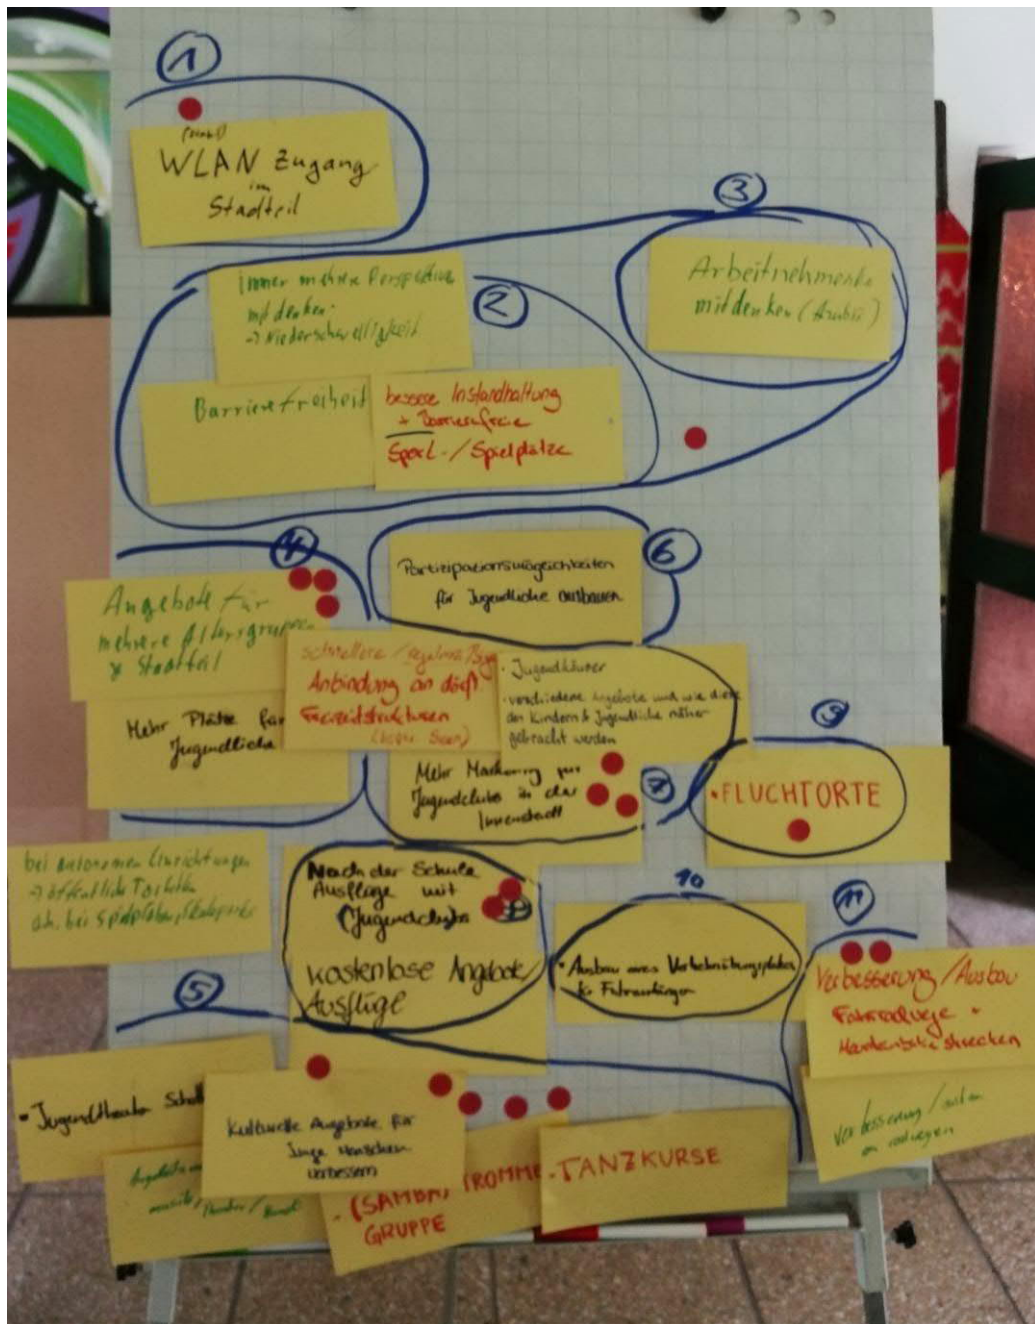 1
WLAN Zugang
im
Stadtteil
3
Arbeitnehmende
mitdenken
immer mehrere Perspektiven
mitdenken
→ Niederschwelligkeit
2
Barrierefreiheit
bessere Instandhaltung
+ Barrierefreie
Sport-/Spielplätze
4
Angebote für
mehrere Altersgruppen
Stadtteil
Mehr Plätze für
Jugendliche
6
Partizipationsmöglichkeiten
für Jugendliche ausbauen
schnellere /
Anbindung an dörfl.
Freizeitstrukturen
• Jugendhäuser
• verschiedene Angebote und wie diese
den Kindern & Jugendliche näher
gebracht werden
Mehr Marketing für
Jugendclubs in der
Innenstadt
7
9
• FLUCHTORTE
bei autonomen Einrichtungen
→ öffentliche Toiletten
Nach der Schule
Ausflüge mit
Jugendclubs
8
kostenlose Angebote/
Ausflüge
10
• Ausbau eines Verkehrsübungsplatzes
für Fahranfänger
11
Verbesserung/Ausbau
Fahrradwege +
Mountainbikestrecken
Verbesserung
an radwegen
5
• Jugendtheater
Kulturelle Angebote für
Junge Menschen
verbessern
Angebote
musik/Theater/Kunst
- (SAMBA) TROMMEL
GRUPPE
- TANZKURSE